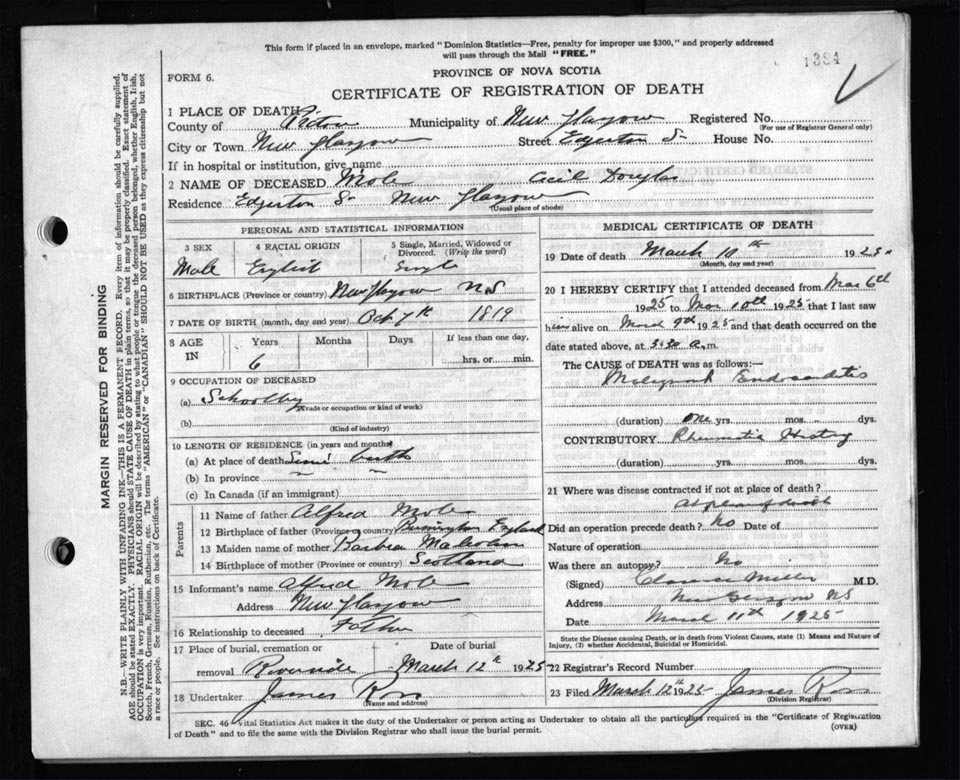 This form if placed in an envelope, marked "Dominion Statistics—Free, penalty for improper use $300," and properly addressed
will pass through the Mail "FREE."
1384
FORM 6.
PROVINCE OF NOVA SCOTIA
CERTIFICATE OF REGISTRATION OF DEATH
1 PLACE OF DEATH:
County of Pictou Municipality of New Glasgow Registered No.
(For use of Registrar General only)
City or Town New Glasgow Street Egerton St House No.
If in hospital or institution, give name
2 NAME OF DECEASED Mole Cecil Douglas
Residence Edgerton St New Glasgow
(Usual place of abode)
PERSONAL AND STATISTICAL INFORMATION
3 SEX 4 RACIAL ORIGIN 5 Single, Married, Widowed or
Divorced. (Write the word)
Male English Single
6 BIRTHPLACE (Province or country) New Glasgow N S
7 DATE OF BIRTH (month, day and year) Oct 7th 1819
8 AGE IN Years Months Days If less than one day,
6 hrs. or min.
9 OCCUPATION OF DECEASED
(a) Schoolboy
(Trade or occupation or kind of work)
(b)
(Kind of industry)
10 LENGTH OF RESIDENCE (in years and months)
(a) At place of death Since birth
(b) In province
(c) In Canada (if an immigrant)
Parents
11 Name of father Alfred Mole
12 Birthplace of father (Province or country) Birmington England
13 Maiden name of mother Barbra Malcolm
14 Birthplace of mother (Province or country) Scotland
15 Informant's name Alfred Mole
Address New Glasgow
16 Relationship to deceased Father
17 Place of burial, cremation or Date of burial
removal Riverside March 12th 1925
18 Undertaker James Ross
(Name and address)
MEDICAL CERTIFICATE OF DEATH
19 Date of death March 10th 1925
(Month, day and year)
20 I HEREBY CERTIFY that I attended deceased from Mar 6th
1925 to Mar 10th 1925 that I last saw
him alive on March 9th 1925 and that death occurred on
the date stated above, at 3:30 a.m.
The CAUSE OF DEATH was as follows:—
Malignant Endocarditis
(duration) one yrs. mos. dys.
CONTRIBUTORY Rheumatic History
(duration) yrs. mos. dys.
21 Where was disease contracted if not at place of death?
At place of death
Did an operation precede death? No Date of
Nature of operation
Was there an autopsy? No
(Signed) Clarence Miller M.D.
Address New Glasgow NS
Date March 11th 1925
State the Disease causing Death, or in death from Violent Causes, state (1) Means and Nature of
Injury, (2) whether Accidental, Suicidal or Homicidal.
22 Registrar's Record Number
23 Filed March 12th 1925 James Ross
(Division Registrar)
SEC. 46—Vital Statistics Act makes it the duty of the Undertaker or person acting as Undertaker to obtain all the particulars required in the "Certificate of Registration
of Death" and to file the same with the Division Registrar who shall issue the burial permit. (OVER)
MARGIN RESERVED FOR BINDING
N.B.—WRITE PLAINLY WITH UNFADING INK—THIS IS A PERMANENT RECORD. Every item of information should be carefully supplied.
AGE should be stated EXACTLY. PHYSICIANS should STATE CAUSE OF DEATH in plain terms, so that it may be properly classified. Exact statement of
OCCUPATION is very important. RACIAL ORIGIN will be described by stating to what people or tongue the deceased person belonged, whether English, Irish,
Scotch, French, German, Russian, Ruthenian, etc. The terms "AMERICAN" or "CANADIAN" SHOULD NOT BE USED as they express citizenship but not
a race or people. See instructions on back of Certificate.